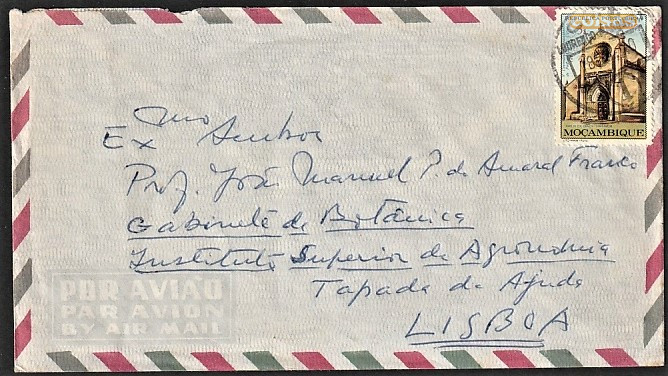 REPÚBLICA PORTUGUESA
CORREIO
MOÇAMBIQUE
Exmo Senhor
Prof. João Manuel P. do Amaral Franco
Gabinete de Botânica
Instituto Superior de Agronomia
Tapada da Ajuda
LISBOA
POR AVIÃO
PAR AVION
BY AIR MAIL